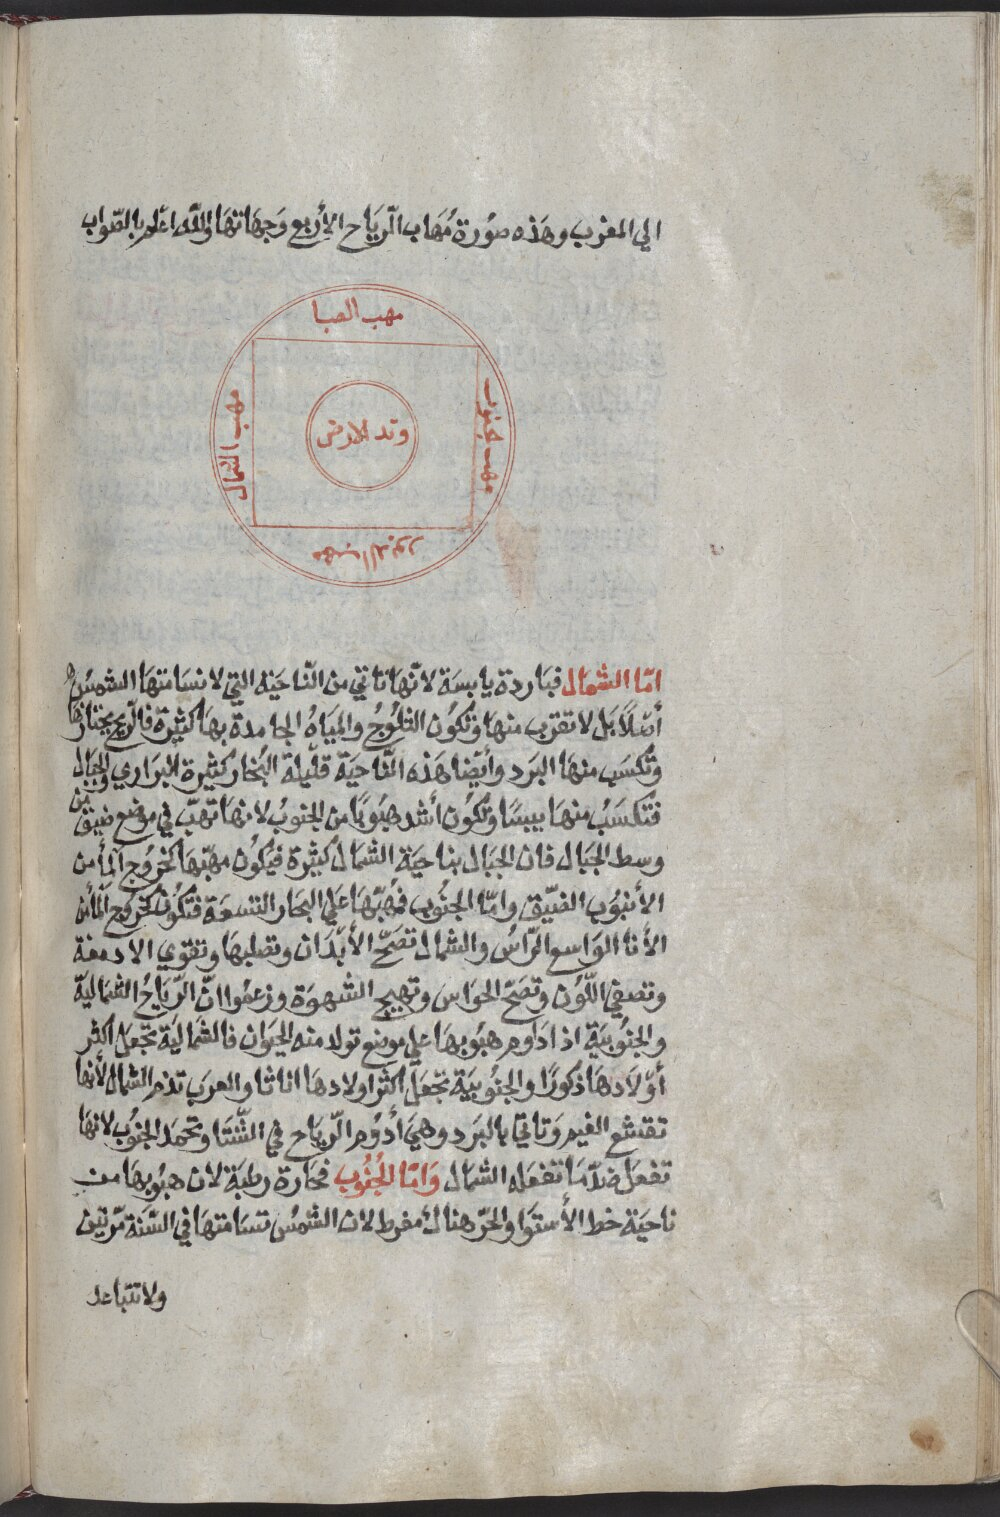 الي المغرب وهَذه صوُرة مُهَاب الّريَاح الأربع وَجهَاتهَا والله اعْلم بالصّواب
مهب الصبا
مهب جنوب
وتد الارض
مهب الشمال
مهب الدبور
امّا الشمال فبَاردة يابسَة لانّهَا تاتي من النّاحيَه التي لا تسَامتهَا الشمسُ
أصْلاً بَل لا تقرب منهَا وتكوُن الثلوُجُ والميَاهُ الجامدة بهَا كثيرة فالريح يجتازها
وتكسَب منهَا البَرد وأيضا هَذه النّاحيَة قليلة البخَار كثيرة البَرَاري والجبَال
فتكسَبُ منهَا يبسًا وتكوُن أشد هبُوبًا من الجنوبُ لانهَا تهبّ في موضع ضيق من
وسط الجبَال فان الجبَال بناحيَة الشمَال كثيرة فيكوُن مهبّهَا كخرُوج المأ من
الأنبوُب الضيّق وامّا الجنُوب فمُهبّهَا علي البحَار المتسعَة فتكون كخروج المأ من
الأنا الوَاسع الرّاسُ والشمال تصَحّ الأبْدَان وتصلبهَا وتقوي الادمغة
وتصفي اللّوُن وتصَحّ الحوَاس وتهيج الشهوَة وزعمُوا انّ الرّيَاحُ الشمَاليَة
والجنُوبيَة اذا دَاوم هبُوبهَا علي موضع تولد منه الحيَوان فالشمَاليَة تجعَل اكثر
أوْلادهَا ذكورًا والجنُوبيَة تجعَل اكثر اولادهَا اناثا والعرَب تذم الشمال لأنهَا
تقشع الغيم وَتاتي بالبَرد وهيَ أدوُم الريَاح في الشّتا وتحمَد الجنوُب لانهَا
تفعَل ضدّ مَا تفعَله الشمال وَامّا الجُنُوب فحَارة رطبَة لان هبُوبهَا من
ناحيَة خط الأستوَا والحرّ هناك مفرط لان الشمسُ تسَامتهَا في السَّنة مرّتين
ولا تتبَاعد